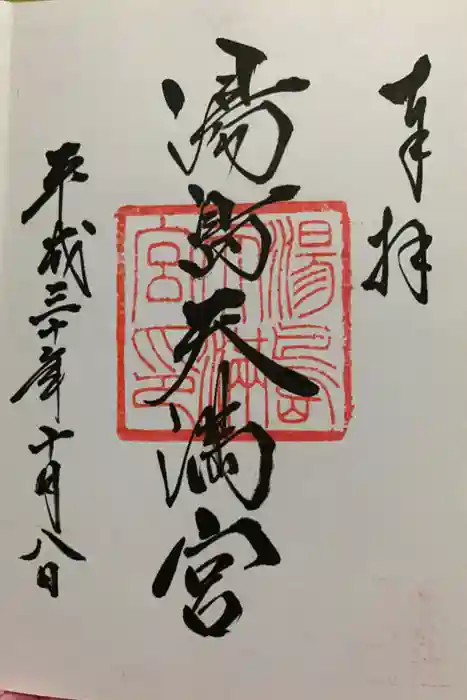 奉拝
湯島天満宮
湯島
天満
宮印
平成三十年十月八日